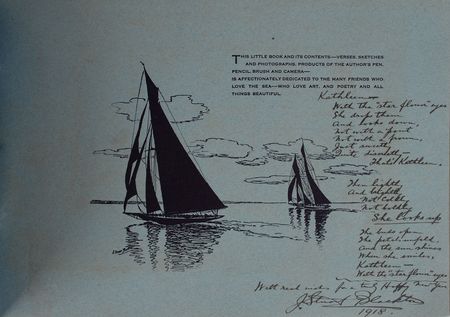 THIS LITTLE BOOK AND ITS CONTENTS—VERSES, SKETCHES
AND PHOTOGRAPHS, PRODUCTS OF THE AUTHOR'S PEN,
PENCIL, BRUSH AND CAMERA—
IS AFFECTIONATELY DEDICATED TO THE MANY FRIENDS WHO
LOVE THE SEA—WHO LOVE ART, AND POETRY AND ALL
THINGS BEAUTIFUL.
Kathleen—
With the "star flower" eyes
She drops them
And looks down,
Not with a pout
Not with a frown,
Just sweetly
Quite discreetly
That's Kathleen.
Then lightly
And brightly
Not coldly
Not boldly
She looks up
The buds open
The petals unfold
And the sun shines
When she smiles,
Kathleen—
With the "star flower" eyes
With real wishes for a truly Happy New Year
J. Stuart Blackton
1918.